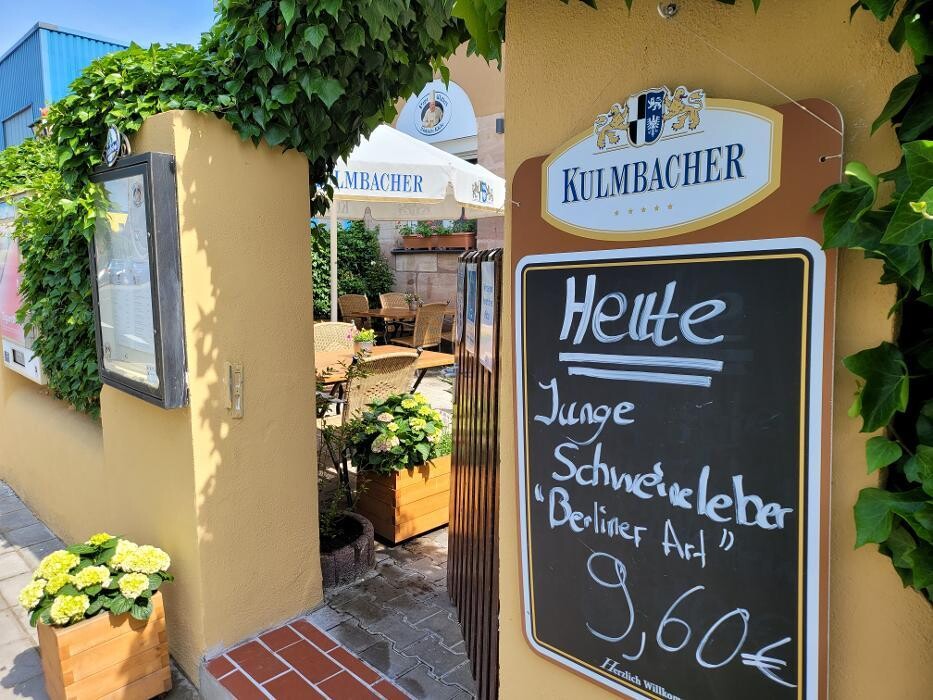 KULMBACHER
KULMBACHER
Heute
Junge
Schweineleber
"Berliner Art"
9,60€
Herzlich Willkom